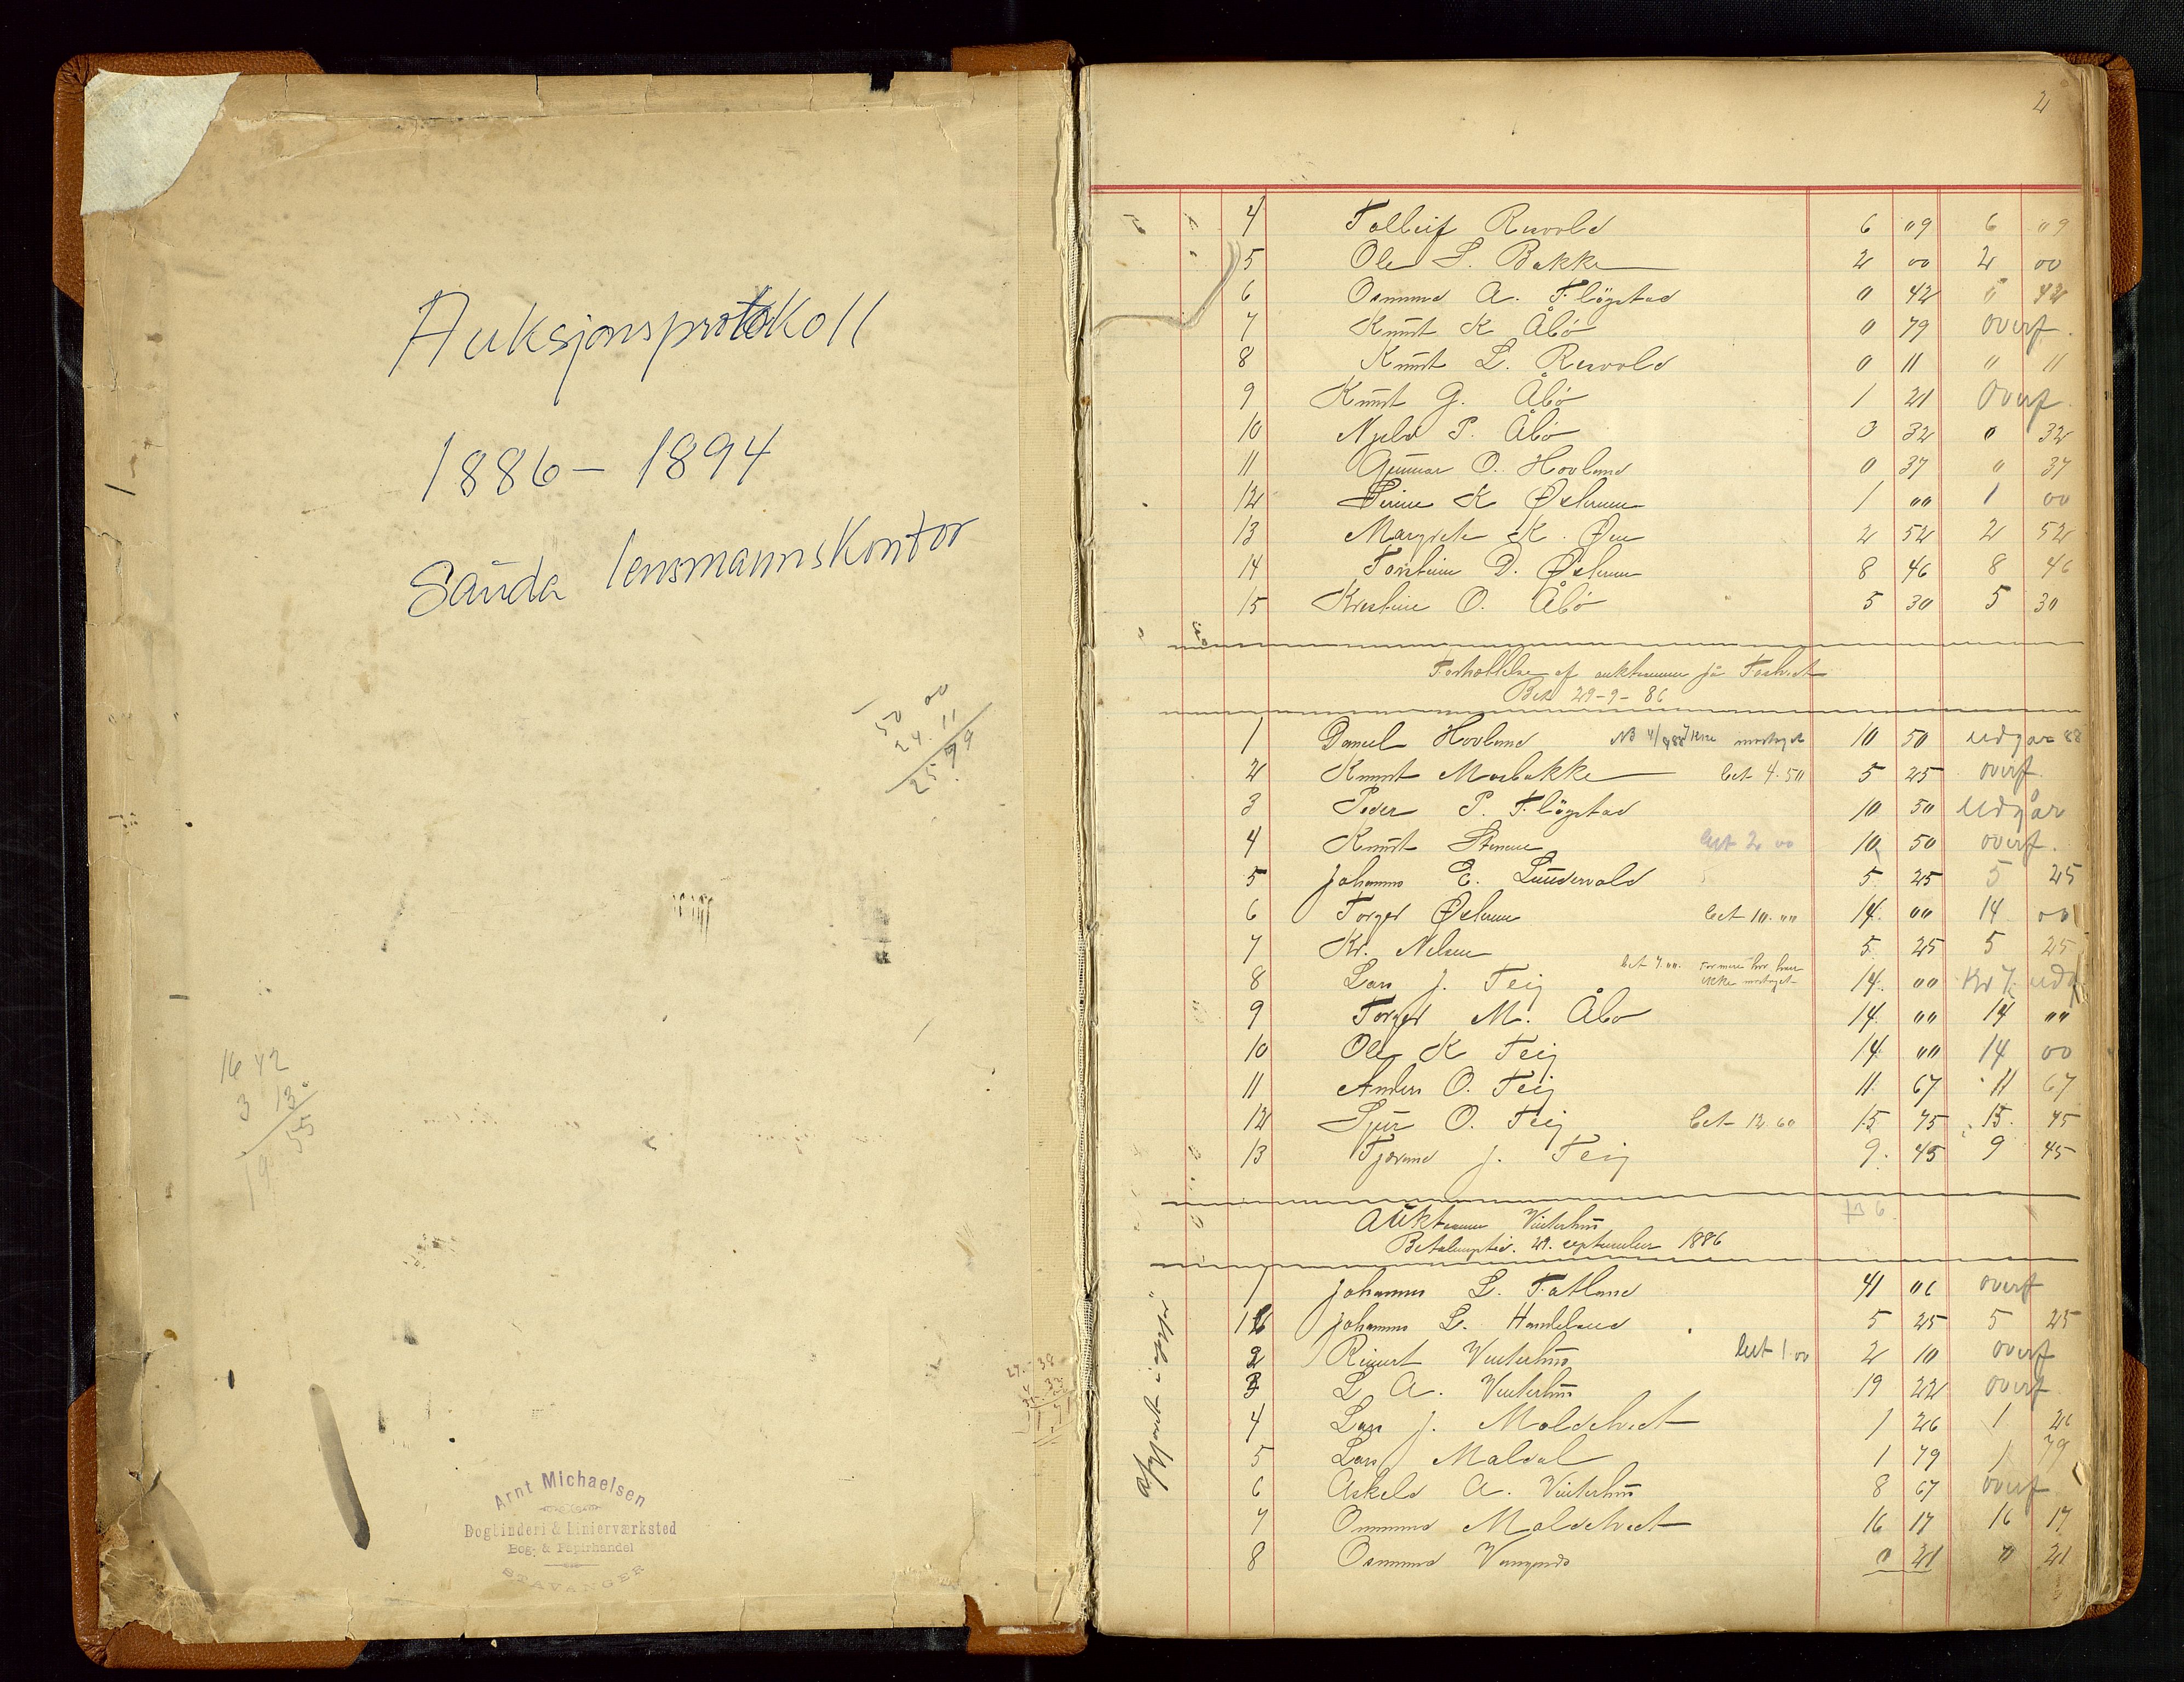 Auksjonsprotokoll
1886 - 1894
Sauda lensmannskontor
50 00
24.11
25.99
16 42
3 13
19 55
Arnt Michaelsen
Bogbinderi & Linierværksted
Bog- & Papirhandel
STAVANGER
2
4 Tolleif Risvold 6 09 6 09
5 Ole S. Bakke 2 00 2 00
6 Osmund A. Fløgstad 0 42 0 42
7 Knut K Åbø 0 79 overf.
8 Knut L. Risvold 0 11 " 11
9 Knut G. Åbø 1 21 Overf.
10 P. Åbø 0 32 0 32
11 Gunnar O. Hovland 0 37 0 37
12 K Øslunn 1 00 1 00
13 Margrete K. Øen 2 52 2 52
14 D. Øslunn 8 46 8 46
15 Kristine O. Åbø 5 30 5 30
af auktionen på
Bet 29-9-86
1 Daniel Hovland NB 10 50 udgår 88
2 Knut Mosbakke bet 4.50 5 25 overf.
3 Peder P. Fløgstad 10 50 udgår
4 Knut bet 2 00 10 50 overf.
5 Johannes E. 5 25 5 25
6 Torger Øslunn bet 10.00 14. 00 14 00
7 Kr. Nelsen 5. 25 5 25
8 Lars J. Teig bet 7.00. 14. 00 Kr 7.
ikke modtaget
9 Torger M. Åbø 14. 00 14 00
10 Ole K Teig 14. 00 14 00
11 Anders O. Teig 11. 67 11 67
12 Sjur O. Teig bet 12.60 15 75 15. 75
13 J. Teig 9. 45 9 45
Auktionen Vinterhus
Betalingstid. 29. september 1886
1 Johannes L. Fatland 41 06 overf
Johannes L. Handeland 5 25 5 25
2 Vinterhus bet 1 00 2 10 overf
3 L A. Vinterhus 19 22 overf.
4 Lars J. Moldetvedt 1 26 1 26
5 Lars Maldal 1 79 1 79
6 Askeld A. Vinterhus 8 67 overf
7 Osmund Moldetvedt 16 17 16 17
8 Osmund 0 21 " 21